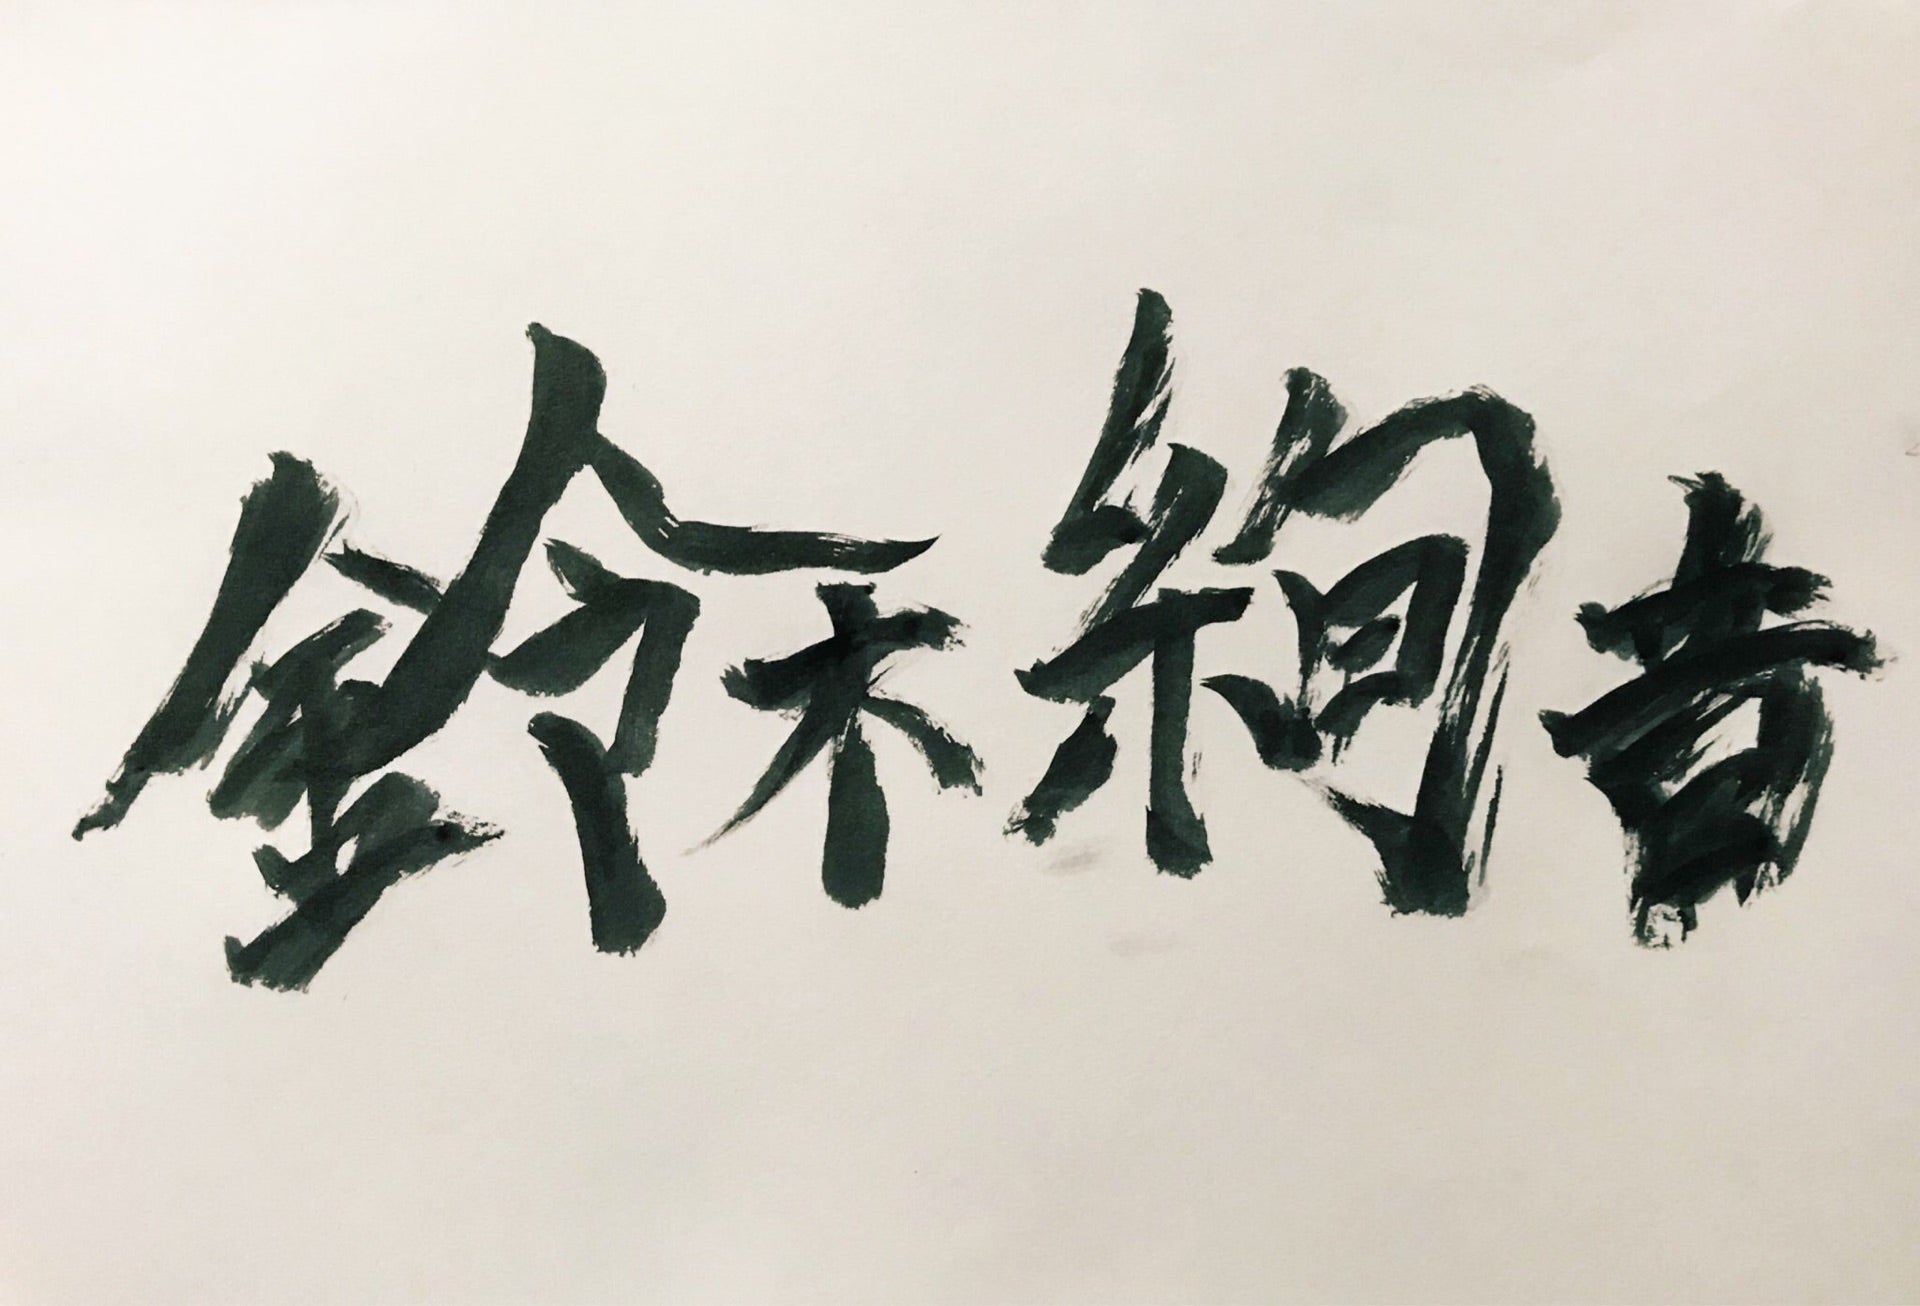 鈴木絢音